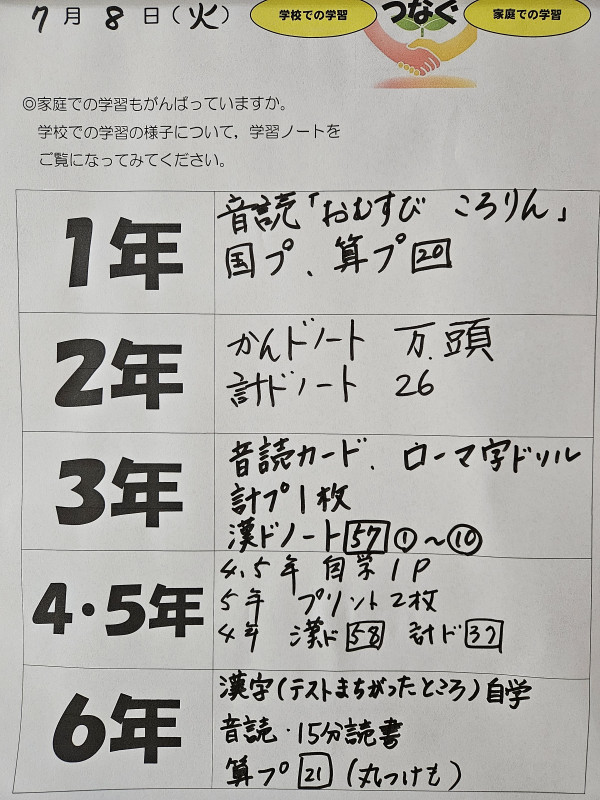 7月8日(火)
学校での学習 つなぐ 家庭での学習
◎家庭での学習もがんばっていますか。
学校での学習の様子について，学習ノートを
ご覧になってみてください。
1年
音読「おむすび ころりん」
国プ、算プ20
2年
かんドノート 万、頭
計ドノート 26
3年
音読カード、ローマ字ドリル
計プ1枚
漢ドノート57①～⑩
4・5年
4.5年 自学1P
5年 プリント2枚
4年 漢ド58 計ド37
6年
漢字(テストまちがったところ)自学
音読・15分読書
算プ21(丸つけも)